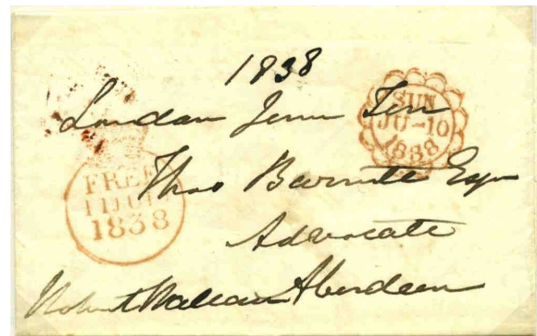 1838
London June Ten
SUN
JU-10
1838
Thos Burnett Esqr
FREE
1838
Advocate
Robert Wallace Aberdeen